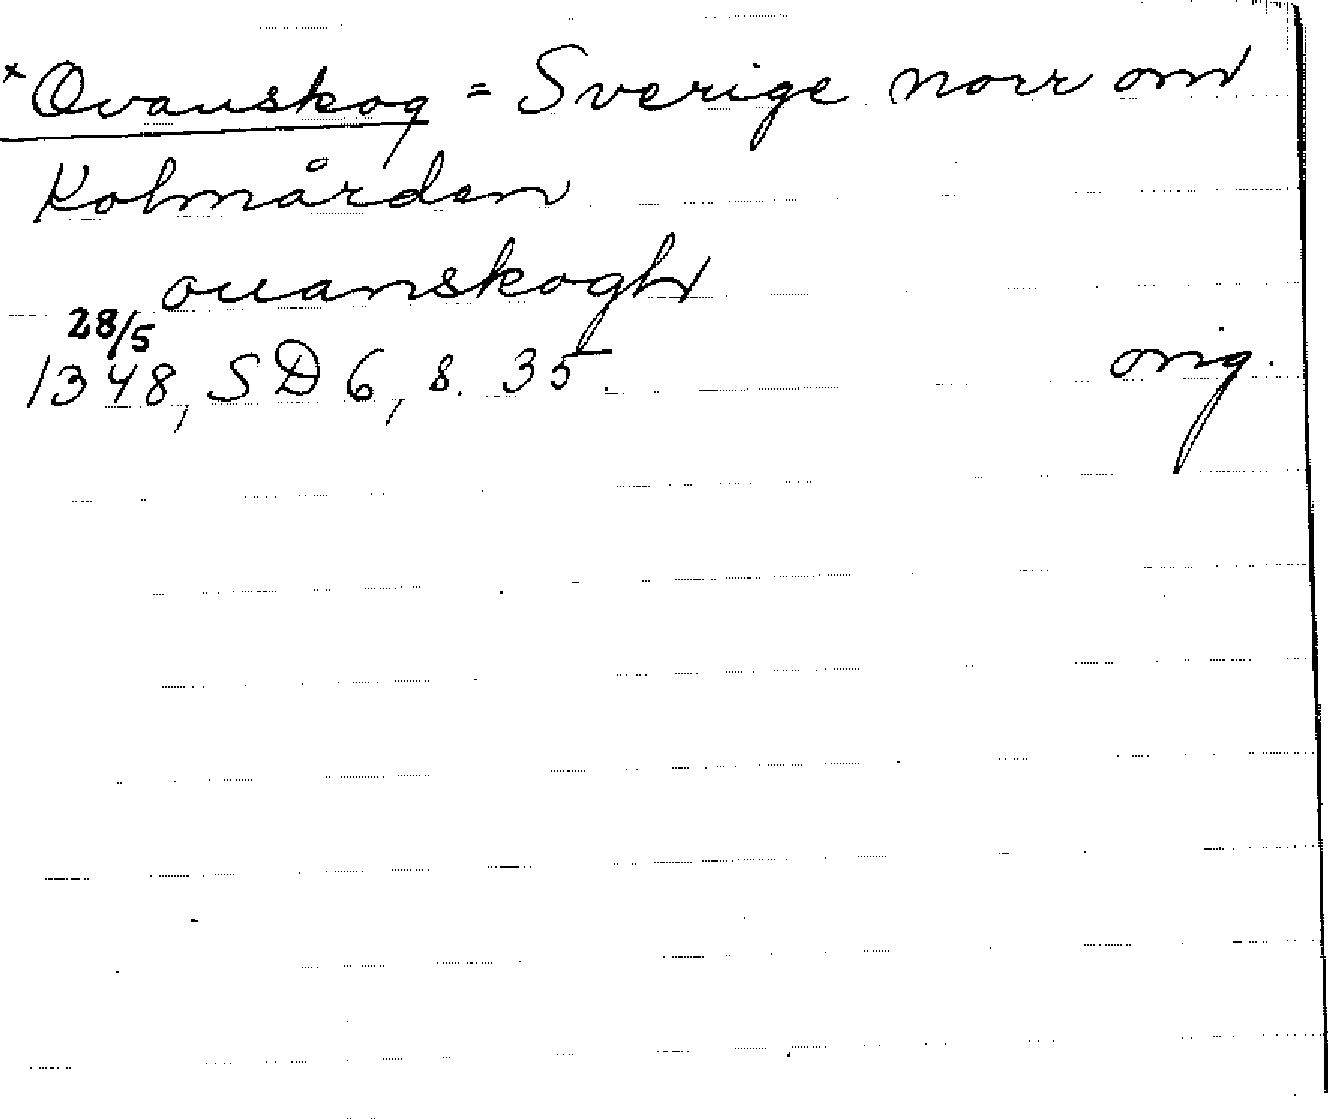 *Ovanskog = Sverige norr om
Kolmården
ouanskogh
28/5
1348, SD 6, s. 35. orig.